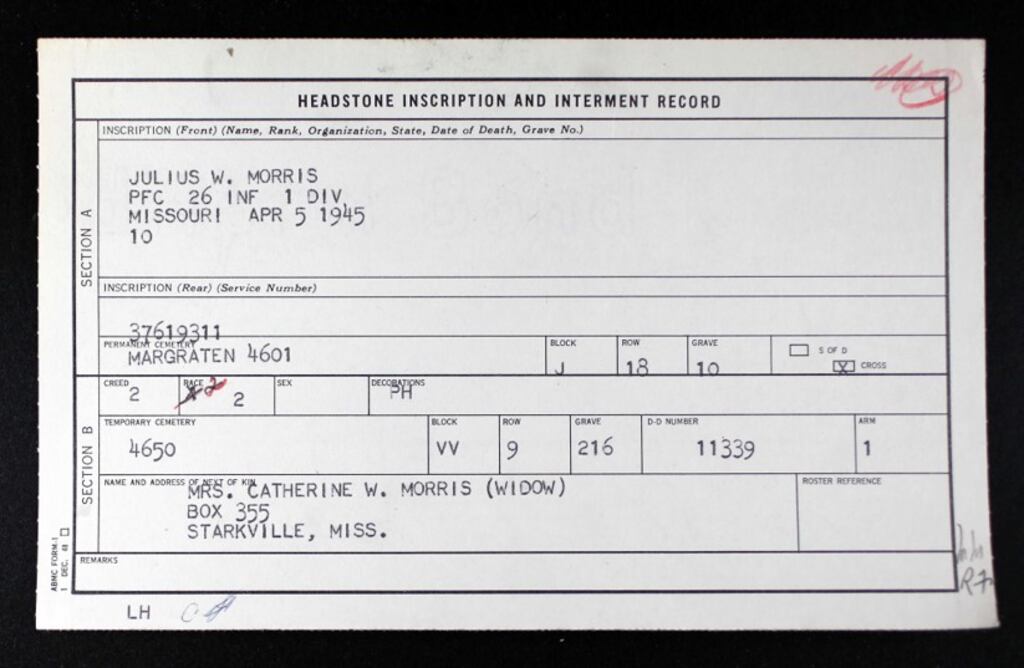 HEADSTONE INSCRIPTION AND INTERMENT RECORD
SECTION A
INSCRIPTION (Front) (Name, Rank, Organization, State, Date of Death, Grave No.)
JULIUS W. MORRIS
PFC 26 INF 1 DIV
MISSOURI APR 5 1945
10
INSCRIPTION (Rear) (Service Number)
37619311
PERMANENT CEMETERY BLOCK ROW GRAVE S OF D
MARGRATEN 4601 J 18 10 X CROSS
SECTION B
CREED RACE SEX DECORATIONS
2 2 2 PH
TEMPORARY CEMETERY BLOCK ROW GRAVE D-D NUMBER ARM
4650 VV 9 216 11339 1
NAME AND ADDRESS OF NEXT OF KIN ROSTER REFERENCE
MRS. CATHERINE W. MORRIS (WIDOW)
BOX 355
STARKVILLE, MISS.
REMARKS
ABMC FORM-1
1 DEC. 48
LH